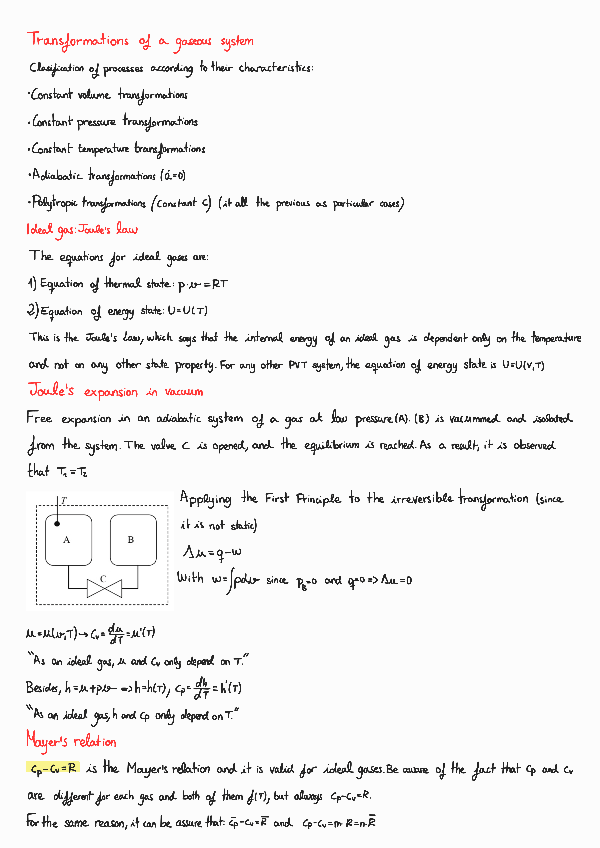 Transformations of a gaseous system
Clasification of processes according to their characteristics:
·Constant volume transformations
·Constant pressure transformations
·Constant temperature transformations
·Adiabatic transformations (q=0)
·Polytropic transformations (Constant C) (it all the previous as particular cases)
Ideal gas: Joule's law
The equations for ideal gases are:
1) Equation of thermal state: p·v=RT
2) Equation of energy state: U=U(T)
This is the Joule's law, which says that the internal energy of an ideal gas is dependent only on the temperature
and not on any other state property. For any other PVT system, the equation of energy state is U=U(V,T)
Joule's expansion in vacuum
Free expansion in an adiabatic system of a gas at low pressure (A). (B) is vacummed and isolated
from the system. The valve C is opened, and the equilibrium is reached. As a result, it is observed
that T₁=T₂
T
A
B
C
Applying the First Principle to the irreversible transformation (since
it is not static)
Δu=q-w
With w=∫pdv since p_B=0 and q=0=>Δu=0
u=u(v,T)→c_v=du/dT=u'(T)
"As an ideal gas, u and Cv only depend on T."
Besides, h=u+pv => h=h(T), c_p=dh/dT=h'(T)
"As an ideal gas, h and Cp only depend on T."
Mayer's relation
c_p-c_v=R is the Mayer's relation and it is valid for ideal gases. Be aware of the fact that Cp and Cv
are different for each gas and both of them f(T), but always Cp-Cv=R.
For the same reason, it can be assure that: c̄_p-c̄_v=R̄ and Cp-Cv=m·R=n·R̄